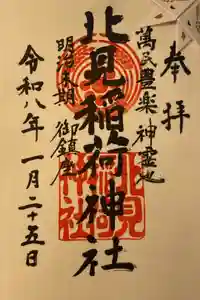 奉拝
萬民豊楽神霊地
北見稲荷神社
明治末期 御鎮座
令和八年一月二十五日
北見
稲荷
神社